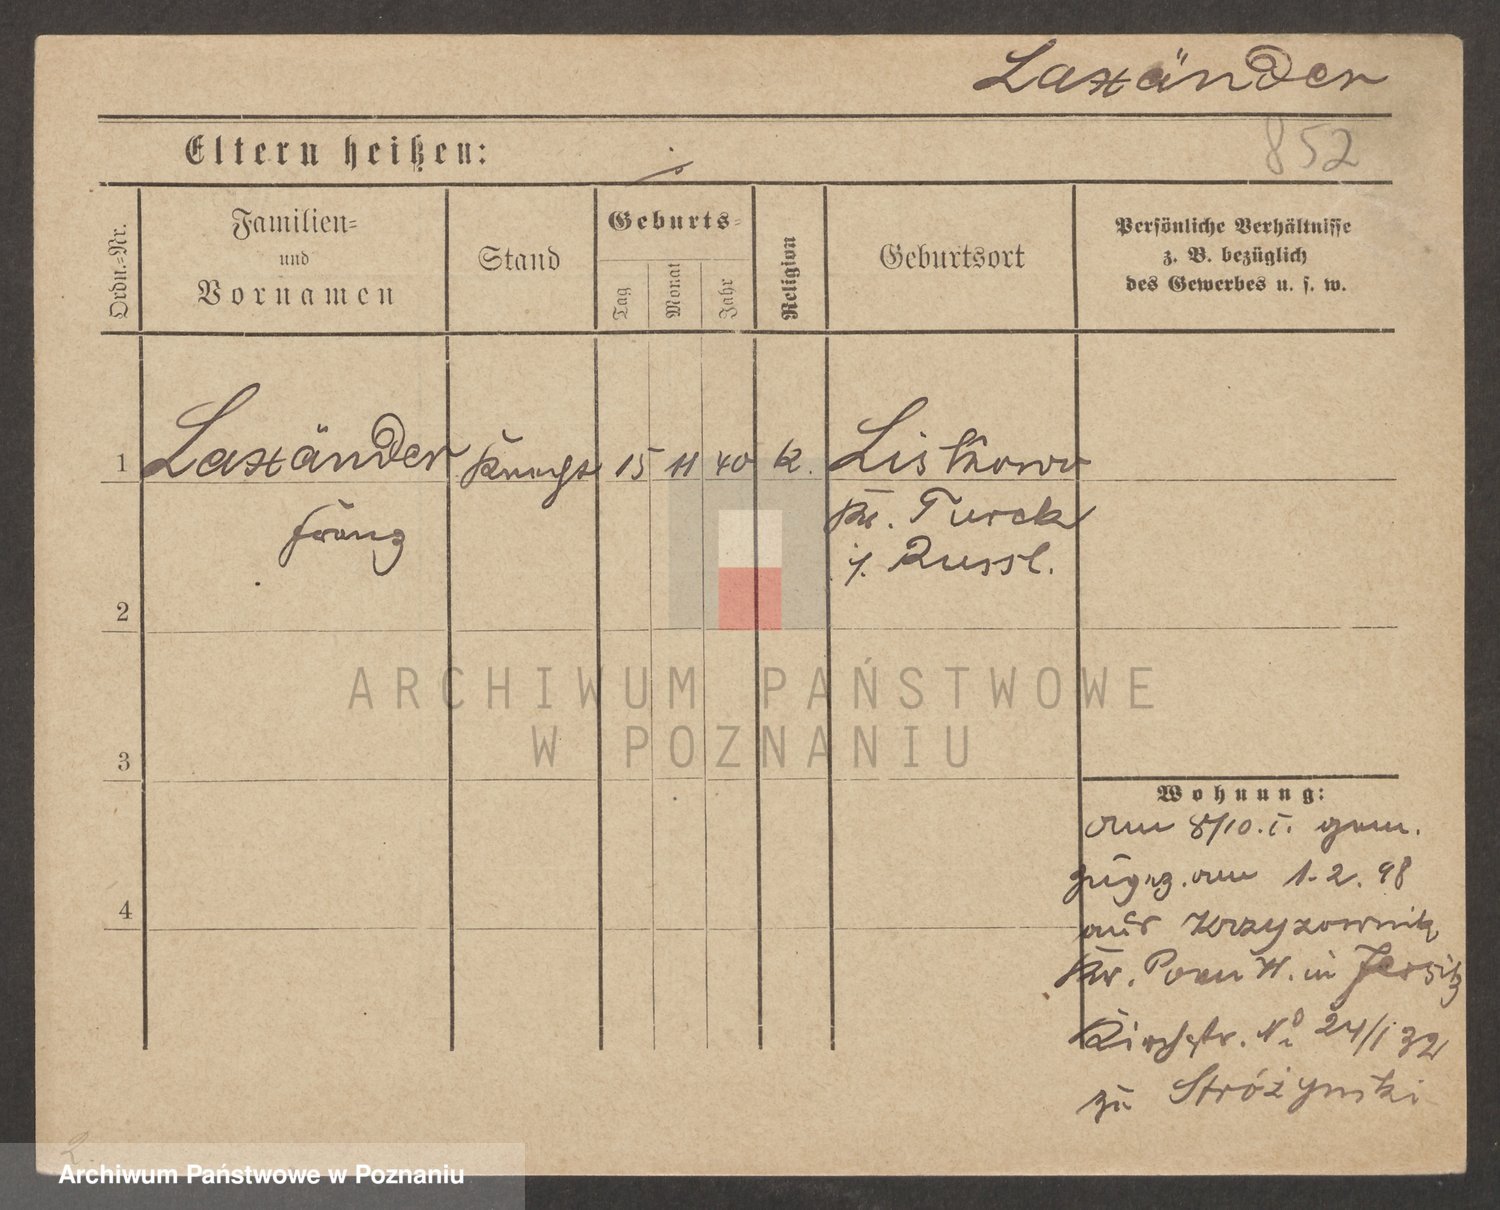 Laxänder
852
Eltern heißen:
Ordn.-Nr.
Familien-
und
Vornamen
Stand
Geburts-
Tag
Monat
Jahr
Religion
Geburtsort
Persönliche Verhältnisse
z. B. bezüglich
des Gewerbes u. s. w.
1 Laxänder Knecht 15 11 40 k. Liskowo
Franz Kr. Turek
i. Russl.
2
3
4
Wohnung:
am 8/10. gem.
zugez. am 1.2.98
aus Krzyzownik
Kr. Posen W. in Jersitz
Kirchstr. No 24/
zu Stróżynski
ARCHIWUM PAŃSTWOWE
W POZNANIU
Archiwum Państwowe w Poznaniu